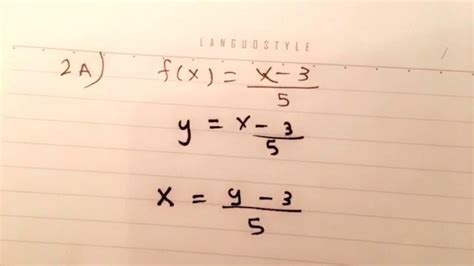 LANGUOSTYLE
2A) f(x) = x-3/5
y = x-3/5
x = y-3/5